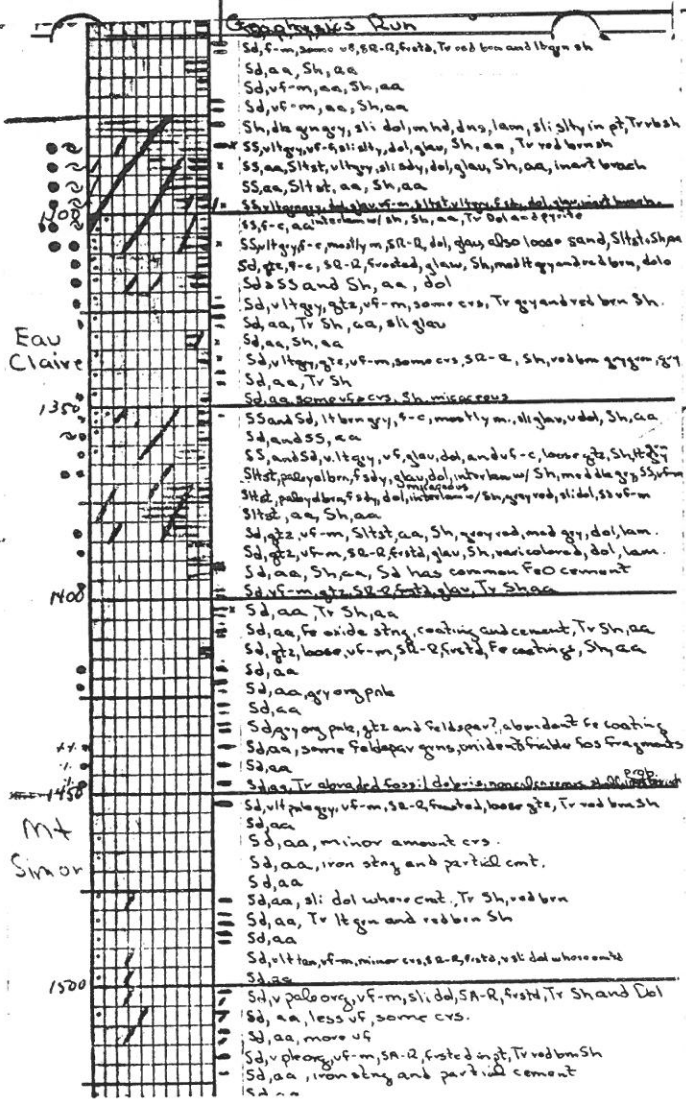 Geophysics Run
Sd, f-m, some vf, SR-R, frstd, Tr red brn and ltgrn sh
Sd, aa, Sh, aa
Sd, vf-m, aa, Sh, aa
Sd, vf-m, aa, Sh, aa
Sh, dk gn gry, sli dol, mhd, dns, lam, sli slty in pt, Tr rbsh
SS, vltgry, vf-f, sli slty, dol, glau, Sh, aa, Tr red brn sh
SS, aa, Sltst, vltgry, sli sdy, dol, glau, Sh, aa, inart brach
SS, aa, Sltst, aa, Sh, aa
SS, vltgngry, dol, glau, vf-m, sltst, vltgry, f sdy, dol, glau, inart brach
1300
SS, f-c, aa interlam w/ sh, Sh, aa, Tr Dol and pyrite
SS, vltgry, f-c, mostly m, SR-R, dol, glau, also loose sand, Sltst, Sh, aa
Sd, qtz, f-c, SR-R, frosted, glau, Sh, med lt gry and red brn, dolo
Sd & SS and Sh, aa, dol
Sd, vltgry, qtz, vf-m, some crs, Tr gry and red brn Sh.
Sd, aa, Tr Sh, aa, sli glau
Eau
Claire
Sd, aa, Sh, aa
Sd, vltgry, qtz, vf-m, some crs, SR-R, Sh, red brn gry grn, gry
Sd, aa, Tr Sh
Sd, aa some vf & crs, Sh, micaceous
1350
SS and Sd, lt brn gry, f-c, mostly m, sli glau, v dol, Sh, aa
Sd, and SS, aa
SS, and Sd, v ltgry, vf, glau, dol, and vf-c, loose qtz, Sh, lt gn gry
Sltst, pale yel brn, f sdy, glau, dol, interlam w/ Sh, med dk gry, SS, vf-m
Sltst, pale yel brn, f sdy, dol, micaceous interlam w/ Sh, gry red, sli dol, SS vf-m
Sltst, aa, Sh, aa
Sd, qtz, vf-m, Sltst, aa, Sh, grey red, med gry, dol, lam.
Sd, qtz, vf-m, SR-R, frstd, glau, Sh, varicolored, dol, lam.
Sd, aa, Sh, aa, Sd has common FeO cement
Sd, vf-m, qtz, SR-R, frstd, glau, Tr Sh, aa
1400
Sd, aa, Tr Sh, aa
Sd, aa, Fe oxide stng, coating and cement, Tr Sh, aa
Sd, qtz, loose, vf-m, SR-R, frstd, Fe coatings, Sh, aa
Sd, aa
Sd, aa, gry org pnk
Sd, aa
Sd, gry org pnk, qtz and feldspar?, abundant fe coating
Sd, aa, some feldspar grns, unidentifiable fos fragments
Sd, aa
Sd, aa, Tr abraded fossil debris, noncalcareous shell, prob. inart brach
1450
Mt
Simon
Sd, vlt pnk gry, vf-m, SR-R, frosted, loose qtz, Tr red brn Sh
Sd, aa
Sd, aa, minor amount crs.
Sd, aa, iron stng and partial cmt.
Sd, aa
Sd, aa, sli dol where cmt., Tr Sh, red brn
Sd, aa, Tr lt grn and red brn Sh
Sd, aa
Sd, vlt tan, vf-m, minor crs, SR-R, frstd, v sli dol where cmtd
Sd, aa
1500
Sd, v pale org, vf-m, sli dol, SA-R, frstd, Tr Sh and Dol
Sd, aa, less vf, some crs.
Sd, aa, more vf
Sd, v ple org, vf-m, SA-R, frsted in pt, Tr red brn Sh
Sd, aa, iron stng and partial cement
Sd aa